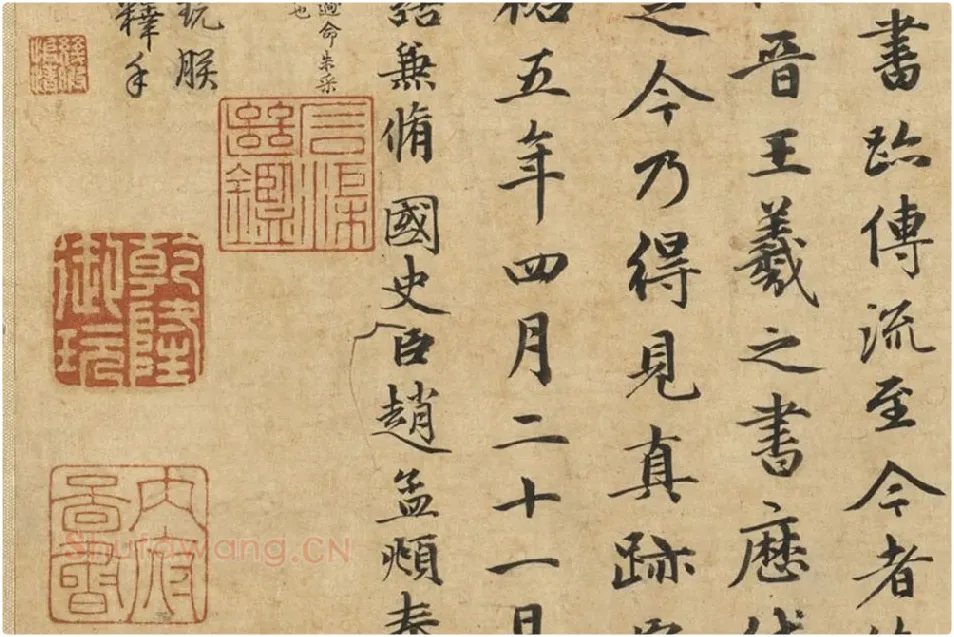 書跡傳流至今者
晉王羲之書歷代
之今乃得見真跡
祐五年四月二十一日
誥兼脩國史臣趙孟頫奉
命朱采
也
玩朕
釋手
石渠繼鑑
乾隆御玩
內府圖書
Shufawang.CN